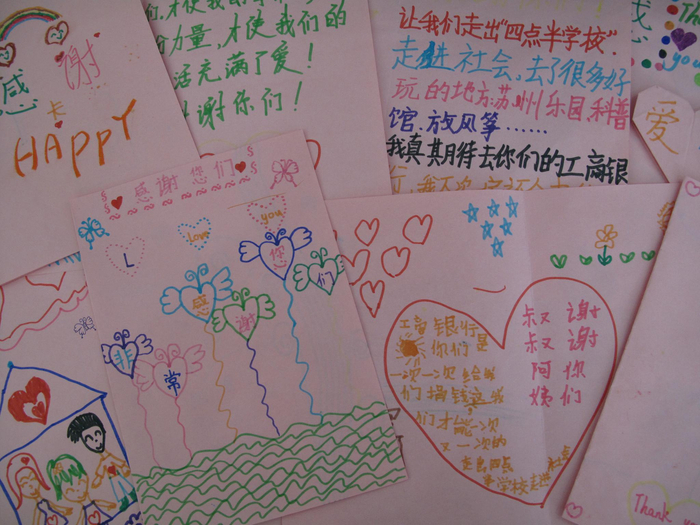 感谢
卡
HAPPY
力量,才使我们的
活充满了爱!
谢你们!
让我们走出"四点半学校".
走进社会,去了很多好
玩的地方:苏州乐园、科普
馆.放风筝……
我真期待去你们的工商银
you
爱
感谢您们
L love you
非常感谢您们
工商银行
你们是
一次一次给我
们捐钱这些
们才能一次
又一次的
叔叔阿姨
谢谢你们
Thank